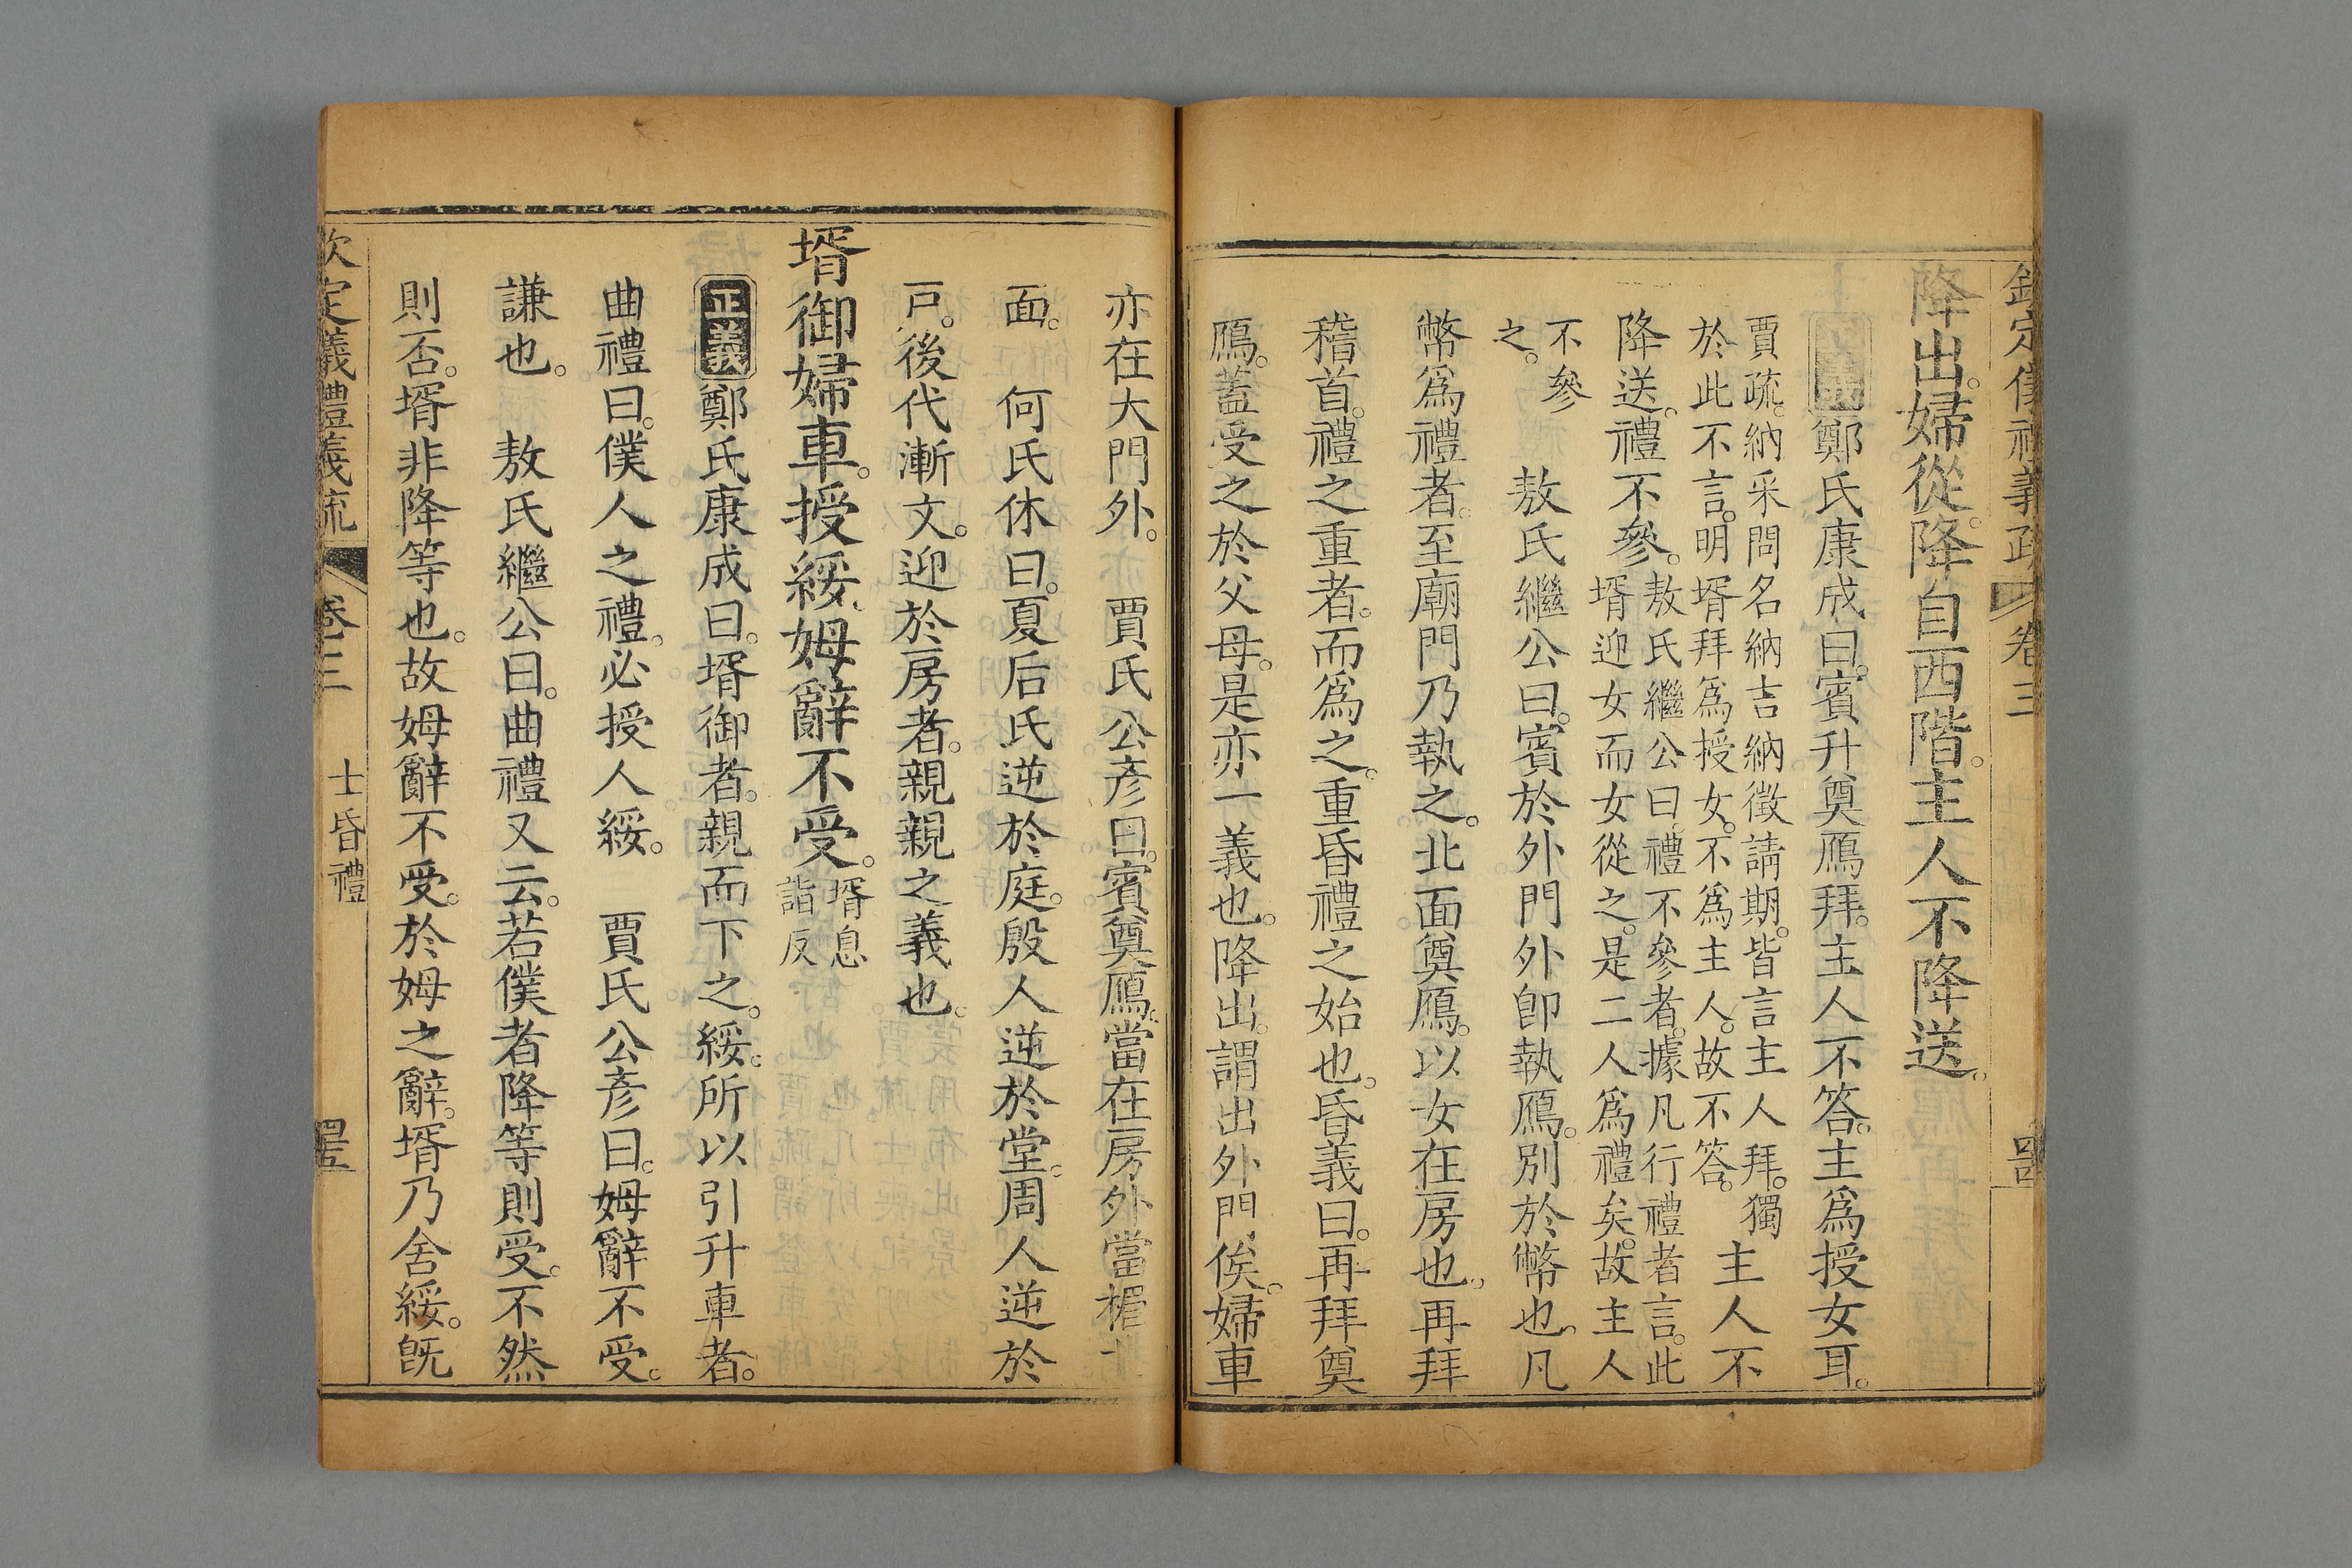 欽定儀禮義疏 卷三 四
降出。婦從。降自西階。主人不降送。
正義 鄭氏康成曰。賓升奠鴈拜。主人不答。主爲授女耳。
賈疏。納采問名納吉納徵請期。皆言主人拜。獨
於此不言。明壻拜爲授女。不爲主人。故不答。
主人不
降送。禮不參。
敖氏繼公曰。禮不參者。據凡行禮者言。此
壻迎女而女從之。是二人爲禮矣。故主人
不參
之。
敖氏繼公曰。賓於外門外卽執鴈。別於幣也。凡
幣爲禮者。至廟門乃執之。北面奠鴈。以女在房也。再拜
稽首。禮之重者。而爲之。重昏禮之始也。昏義曰。再拜奠
鴈。蓋受之於父母。是亦一義也。降出。謂出外門俟。婦車
亦在大門外。 賈氏公彥曰。賓奠鴈。當在房外當楣北
面。 何氏休曰。夏后氏逆於庭。殷人逆於堂。周人逆於
戸。後代漸文。迎於房者。親親之義也。
壻御婦車。授綏。姆辭不受。
壻息
詣反
正義 鄭氏康成曰。壻御者。親而下之。綏。所以引升車者。
曲禮曰。僕人之禮。必授人綏。 賈氏公彥曰。姆辭不受。
謙也。 敖氏繼公曰。曲禮又云。若僕者降等則受。不然
則否。壻非降等也。故姆辭不受。於姆之辭。壻乃舍綏。旣
欽定儀禮義疏 卷三 士昏禮 四五